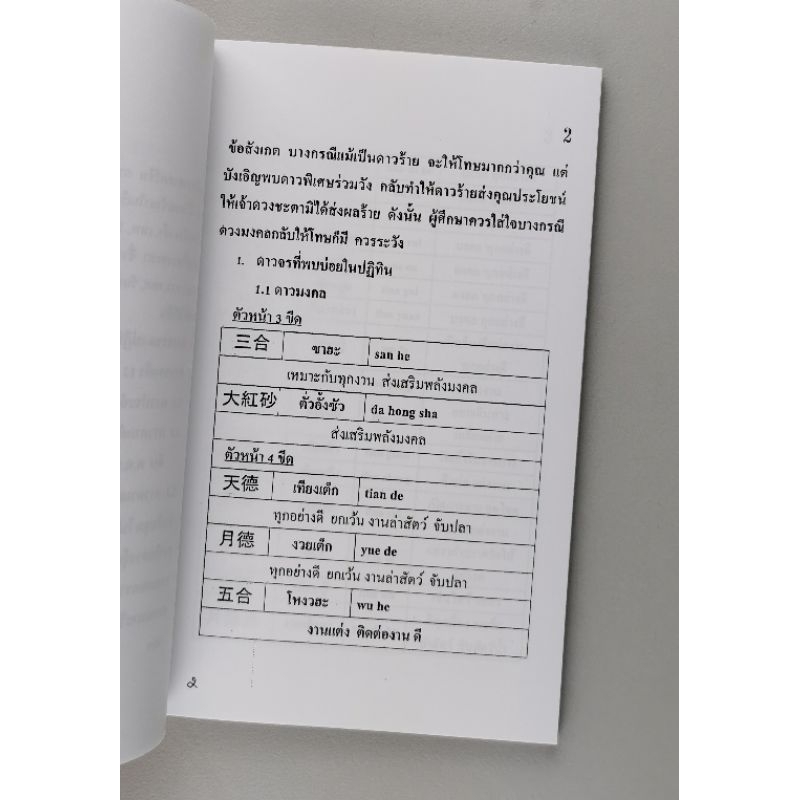 2
ข้อสังเกต บางกรณีแม้เป็นดาวร้าย จะให้โทษมากกว่าคุณ แต่
บังเอิญพบดาวพิเศษร่วมวัง กลับทำให้ดาวร้ายส่งคุณประโยชน์
ให้เจ้าดวงชะตามิได้ส่งผลร้าย ดังนั้น ผู้ศึกษาควรใส่ใจบางกรณี
ดวงมงคลกลับให้โทษก็มี ควรระวัง
1. ดาวจรที่พบบ่อยในปฏิทิน
1.1 ดาวมงคล
ตัวหน้า 3 ขีด
三合 ซาฮะ san he
เหมาะกับทุกงาน ส่งเสริมพลังมงคล
大紅砂 ตั่วอั้งซัว da hong sha
ส่งเสริมพลังมงคล
ตัวหน้า 4 ขีด
天德 เทียงเต็ก tian de
ทุกอย่างดี ยกเว้น งานล่าสัตว์ จับปลา
月德 งวยเต็ก yue de
ทุกอย่างดี ยกเว้น งานล่าสัตว์ จับปลา
五合 โหงวฮะ wu he
งานแต่ง ติดต่องาน ดี
๖